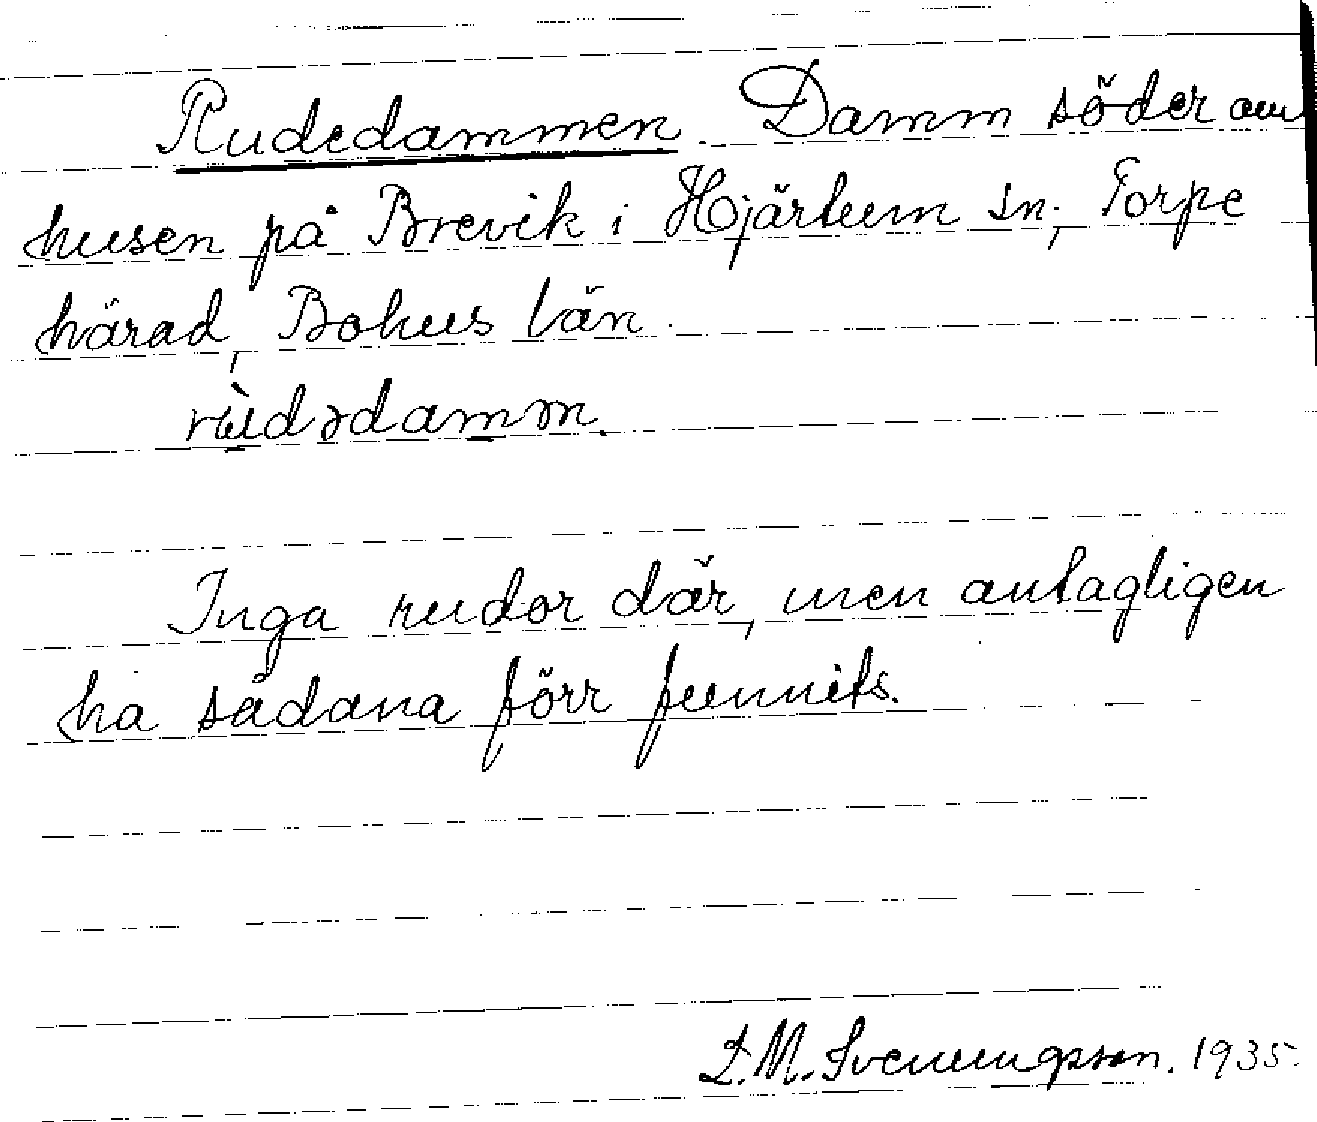 Rudedammen. Damm söder om
husen på Brevik i Hjärtum sn., Torpe
härad, Bohus län.
rùdədamən.
Inga rudor där, men antagligen
ha sådana förr funnits.
L.M. Svenungsson. 1935.